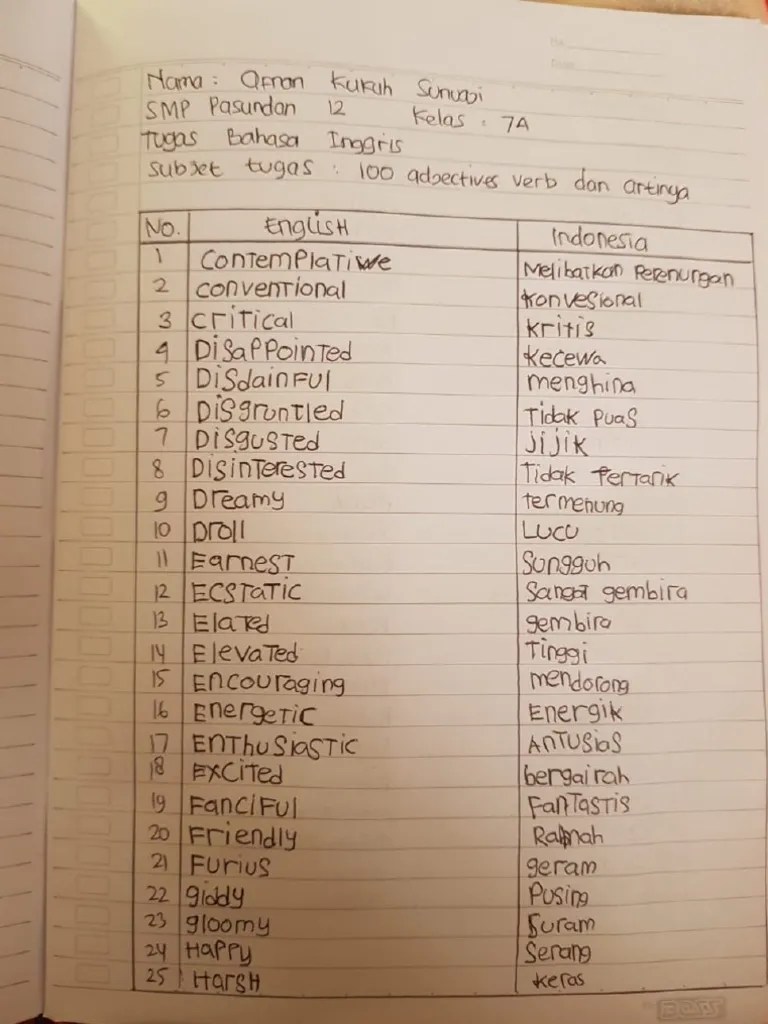 Nama : Afnan Kukuh Sunuaji
SMP Pasundan 12 Kelas : 7A
Tugas Bahasa Inggris
Subjet tugas : 100 adjectives verb dan artinya
No. English Indonesia
1 Contemplatiwe Melibatkan Perenungan
2 Conventional Konvesional
3 Critical Kritis
4 Disappointed Kecewa
5 Disdainful menghina
6 Disgruntled Tidak Puas
7 Disgusted jijik
8 Disinterested Tidak Tertarik
9 Dreamy termenung
10 Droll Lucu
11 Earnest Sungguh
12 Ecstatic Sangat gembira
13 Elated gembira
14 Elevated Tinggi
15 Encouraging mendorong
16 Energetic Energik
17 Enthusiastic Antusias
18 Excited bergairah
19 Fanciful Fantastis
20 Friendly Ramah
21 Furius geram
22 giddy Pusing
23 gloomy Suram
24 Happy Senang
25 Harsh keras